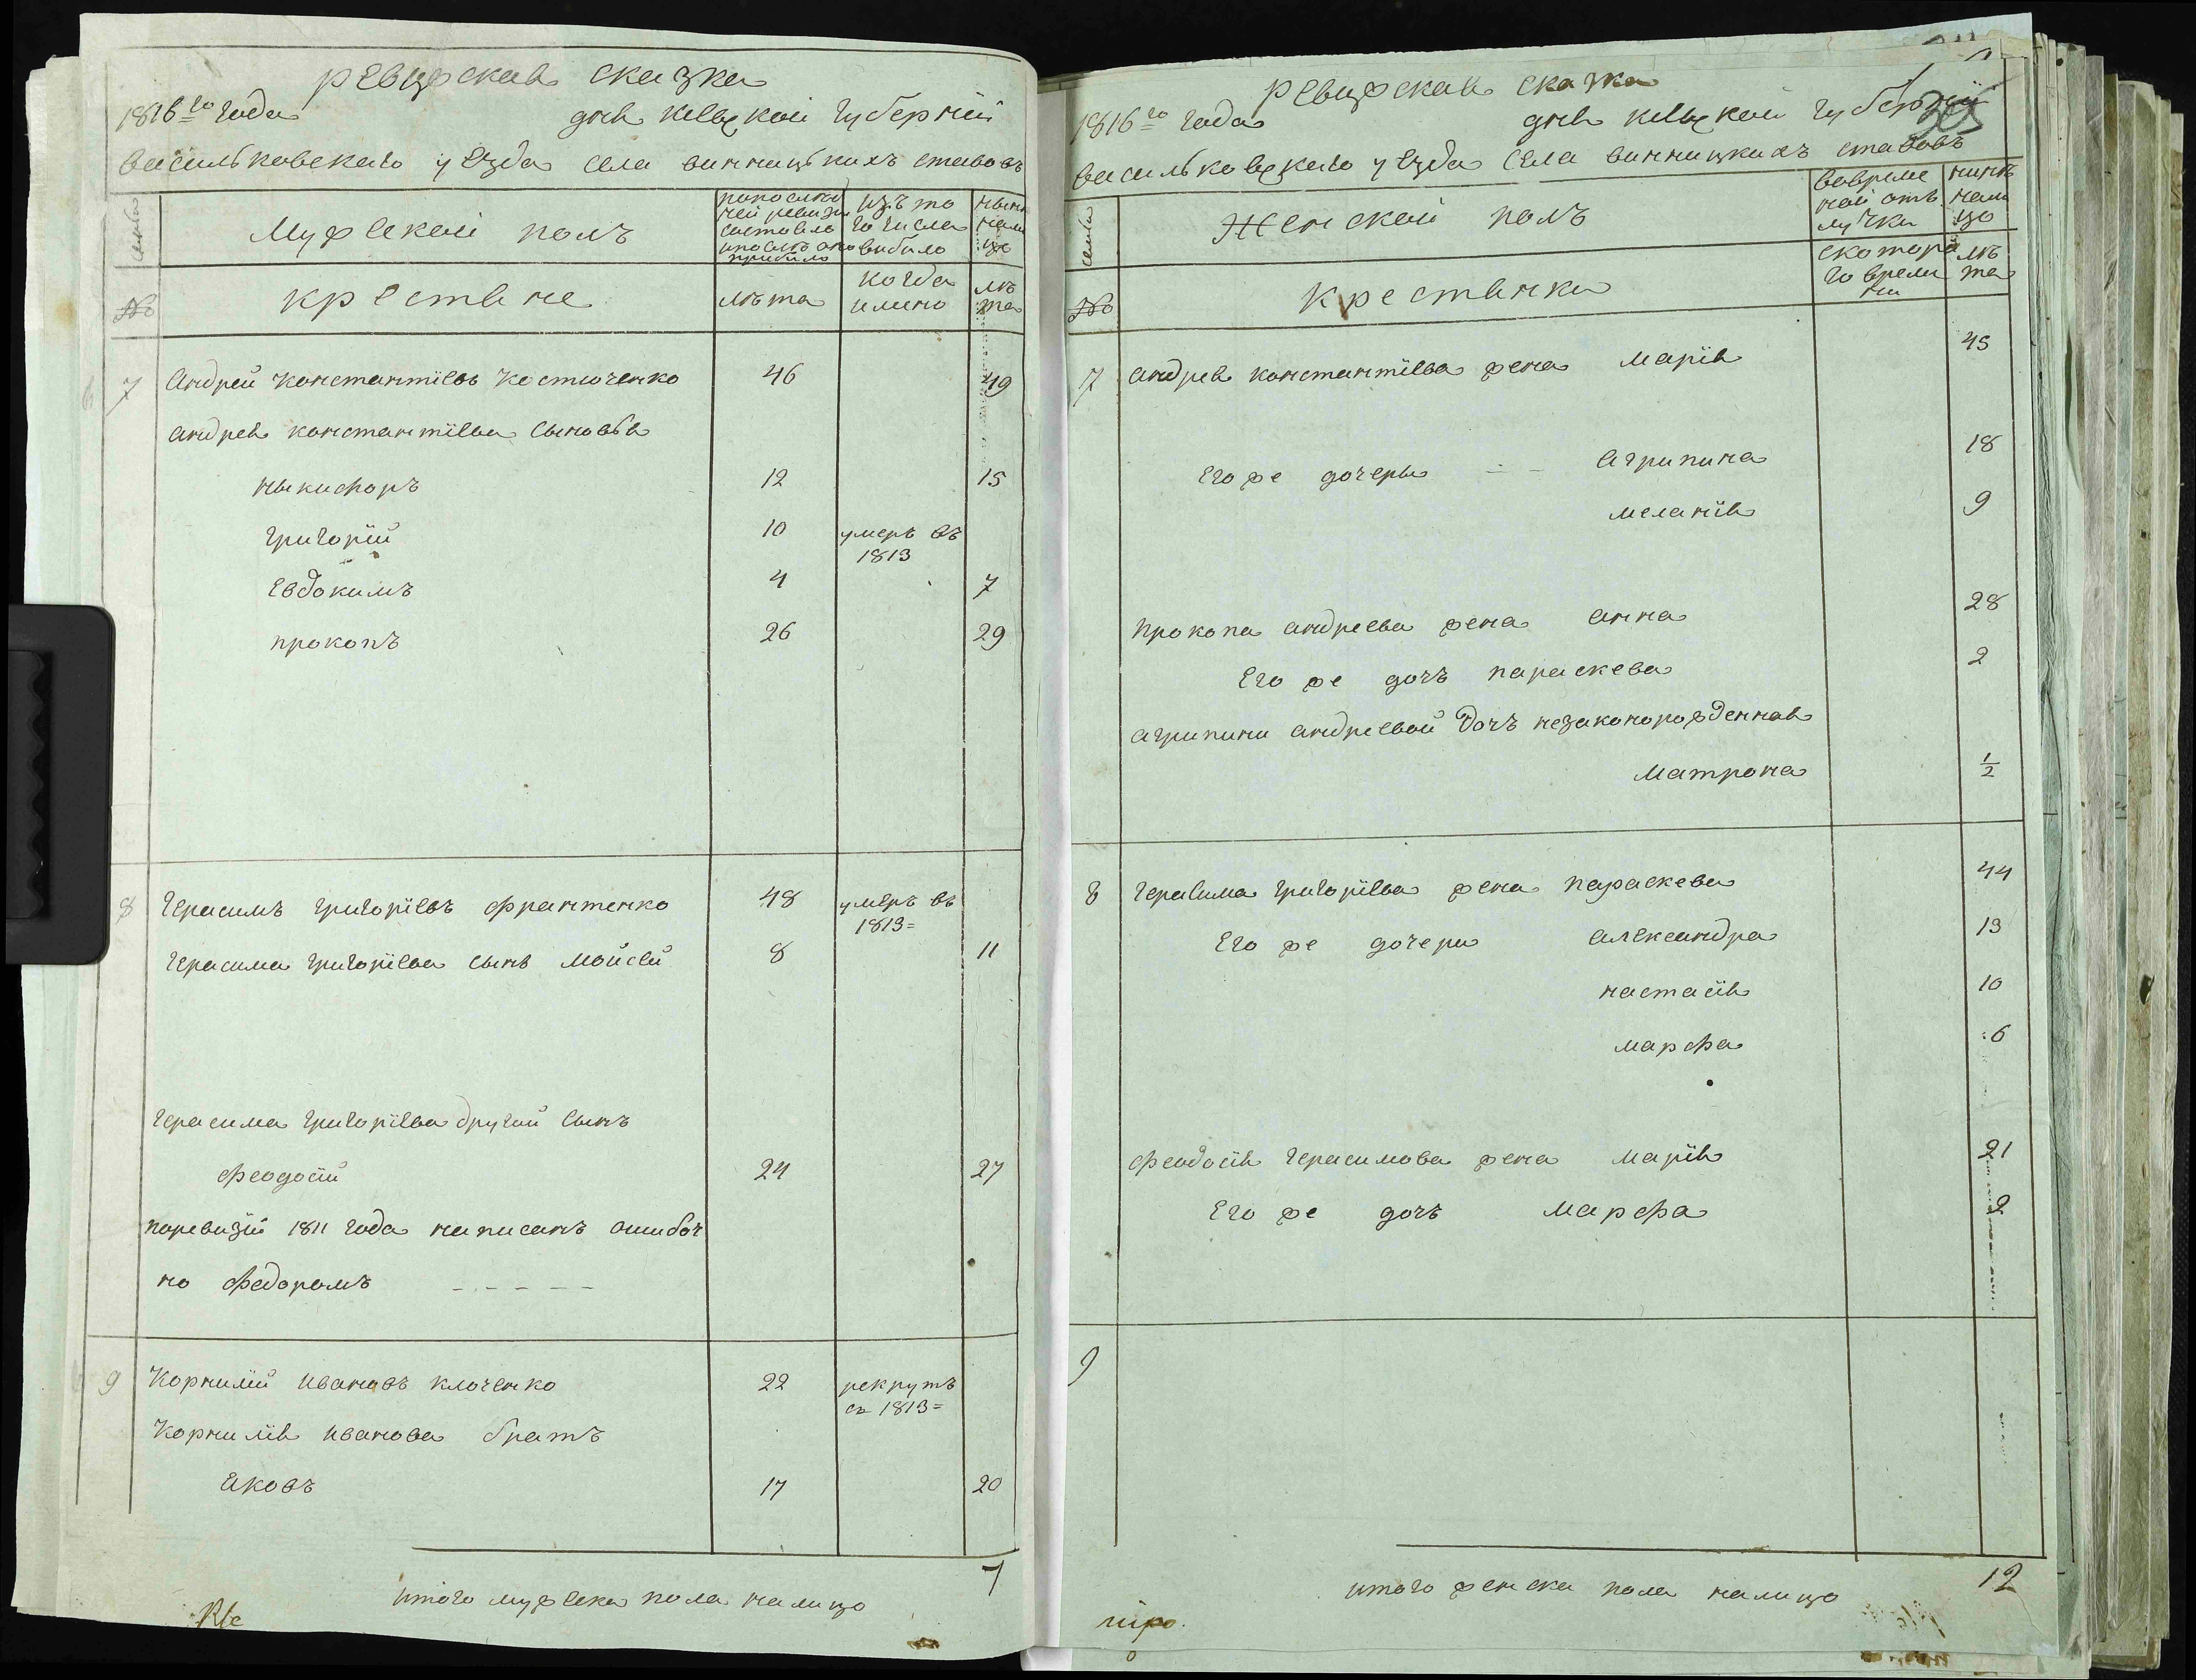 ревизская сказка
1816го года
дня киевской губернїи
васильковскаго уезда села винницькихъ ставовъ
семьи
Мужескои полъ
попоследней ревизїи состояло ипослъ оно прибыло
изъ того числа выбыло
нынѣ налицо
№
крестьяне
лѣта
когда имено
лѣта
7 андрей константїевъ костюченко 46 49
андрея константїева сыновья
ныкифоръ 12 15
григорїй 10 умеръ въ 1813
евдокимъ 4 7
прокопъ 26 29
8 герасимъ григорїевъ франтенко 48 умеръ въ 1813=
герасима григорїева сынъ мойсей 8 11
герасима григорїева другий сынъ
феодосїй 24 27
поревизїи 1811 года написанъ ошибоч
но федоромъ - - - - -
9 корнилїй ивановъ клоченко 22 рекрутъ въ 1813=
корнилїя иванова братъ
яковъ 17 20
итого мужеска пола налицо 7
ревизская сказка
1816го года
дня киевской губернїи
васильковскаго уезда села винницкихъ ставовъ
305
семьи
Женскои полъ
вовременой отлучки
нинѣ налицо
№
крестянки
скотораго времени
лѣта
7 андрея константїева жена марїя 45
его же дочеры - - агрипина 18
меланїя 9
прокопа андреева жена анна 28
его же дочъ параскева 2
агрипини андреевой дочъ незаконорожденная
матрона 1/2
8 герасима григорїева жена параскева 44
его же дочери александра 13
настасїя 10
марфа 6
феодосїя герасимова жена марїя 21
его же дочъ марфа 2
9
итого женска пола налицо 12